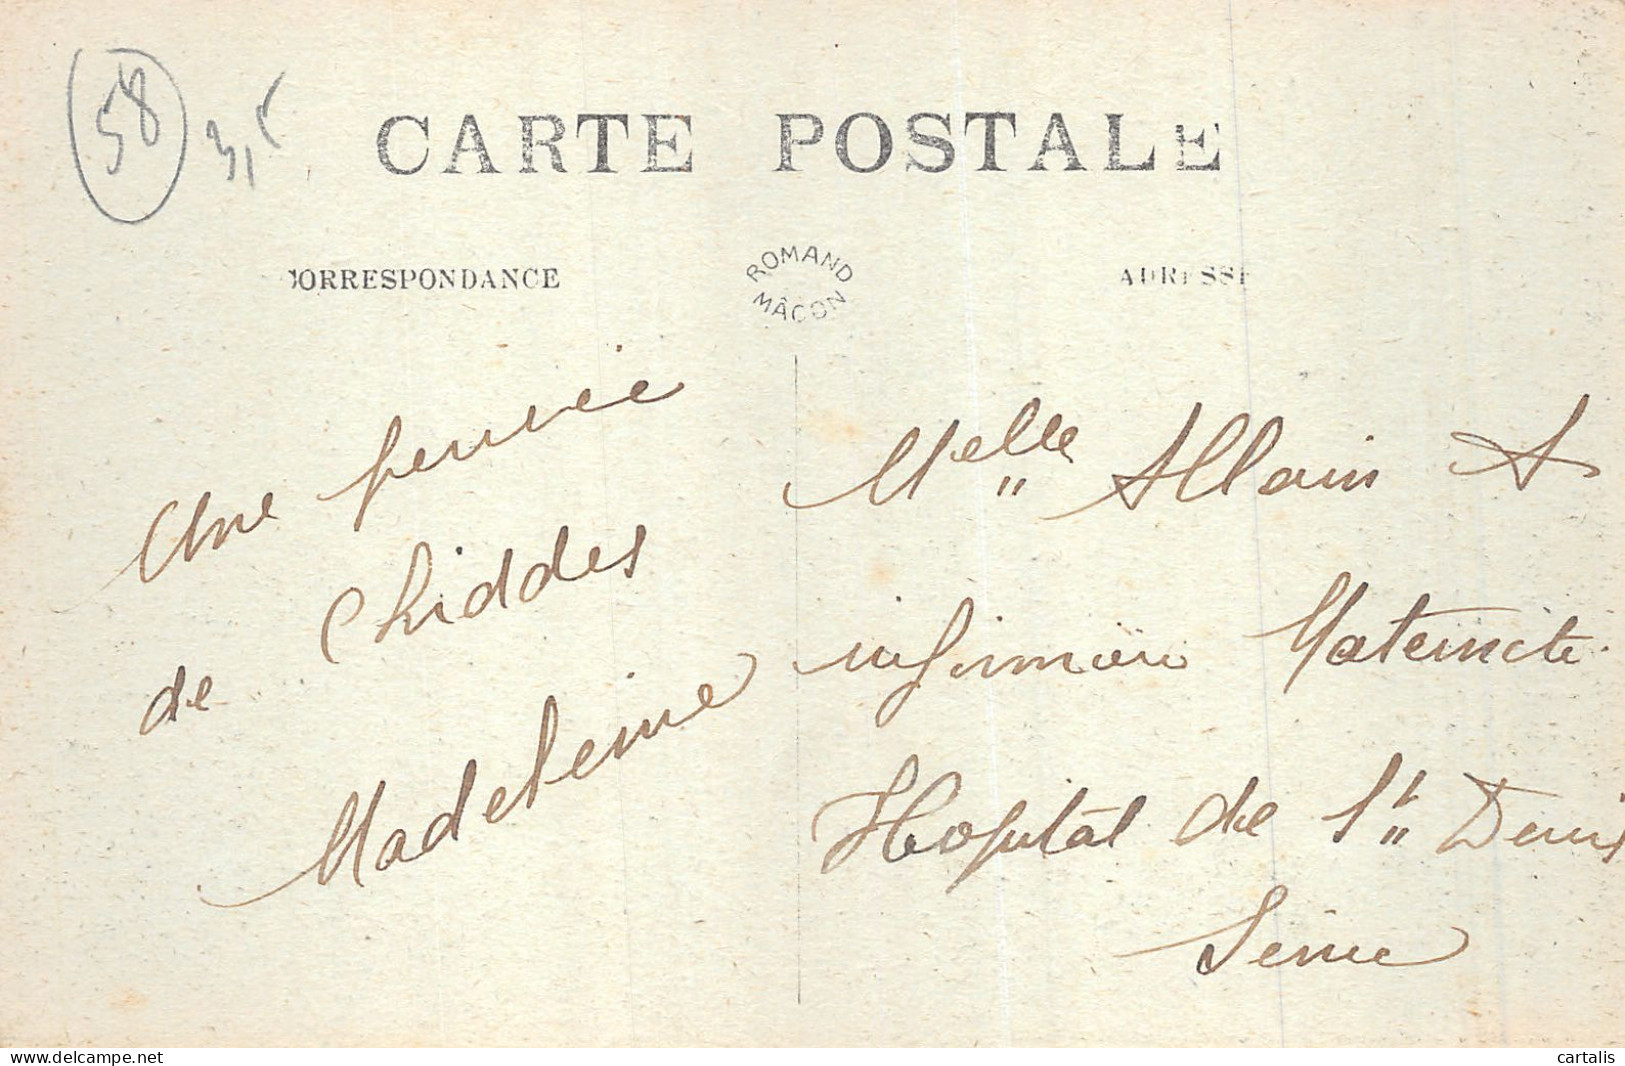 58 3,5
CARTE POSTALE
CORRESPONDANCE
ROMAND
MÂCON
ADRESSE
Une pensée
de Chiddes
Madeleine
Melle Allain A
infirmière Maternité
Hopital de St Denis
Seine
delcampe.net
cartalis